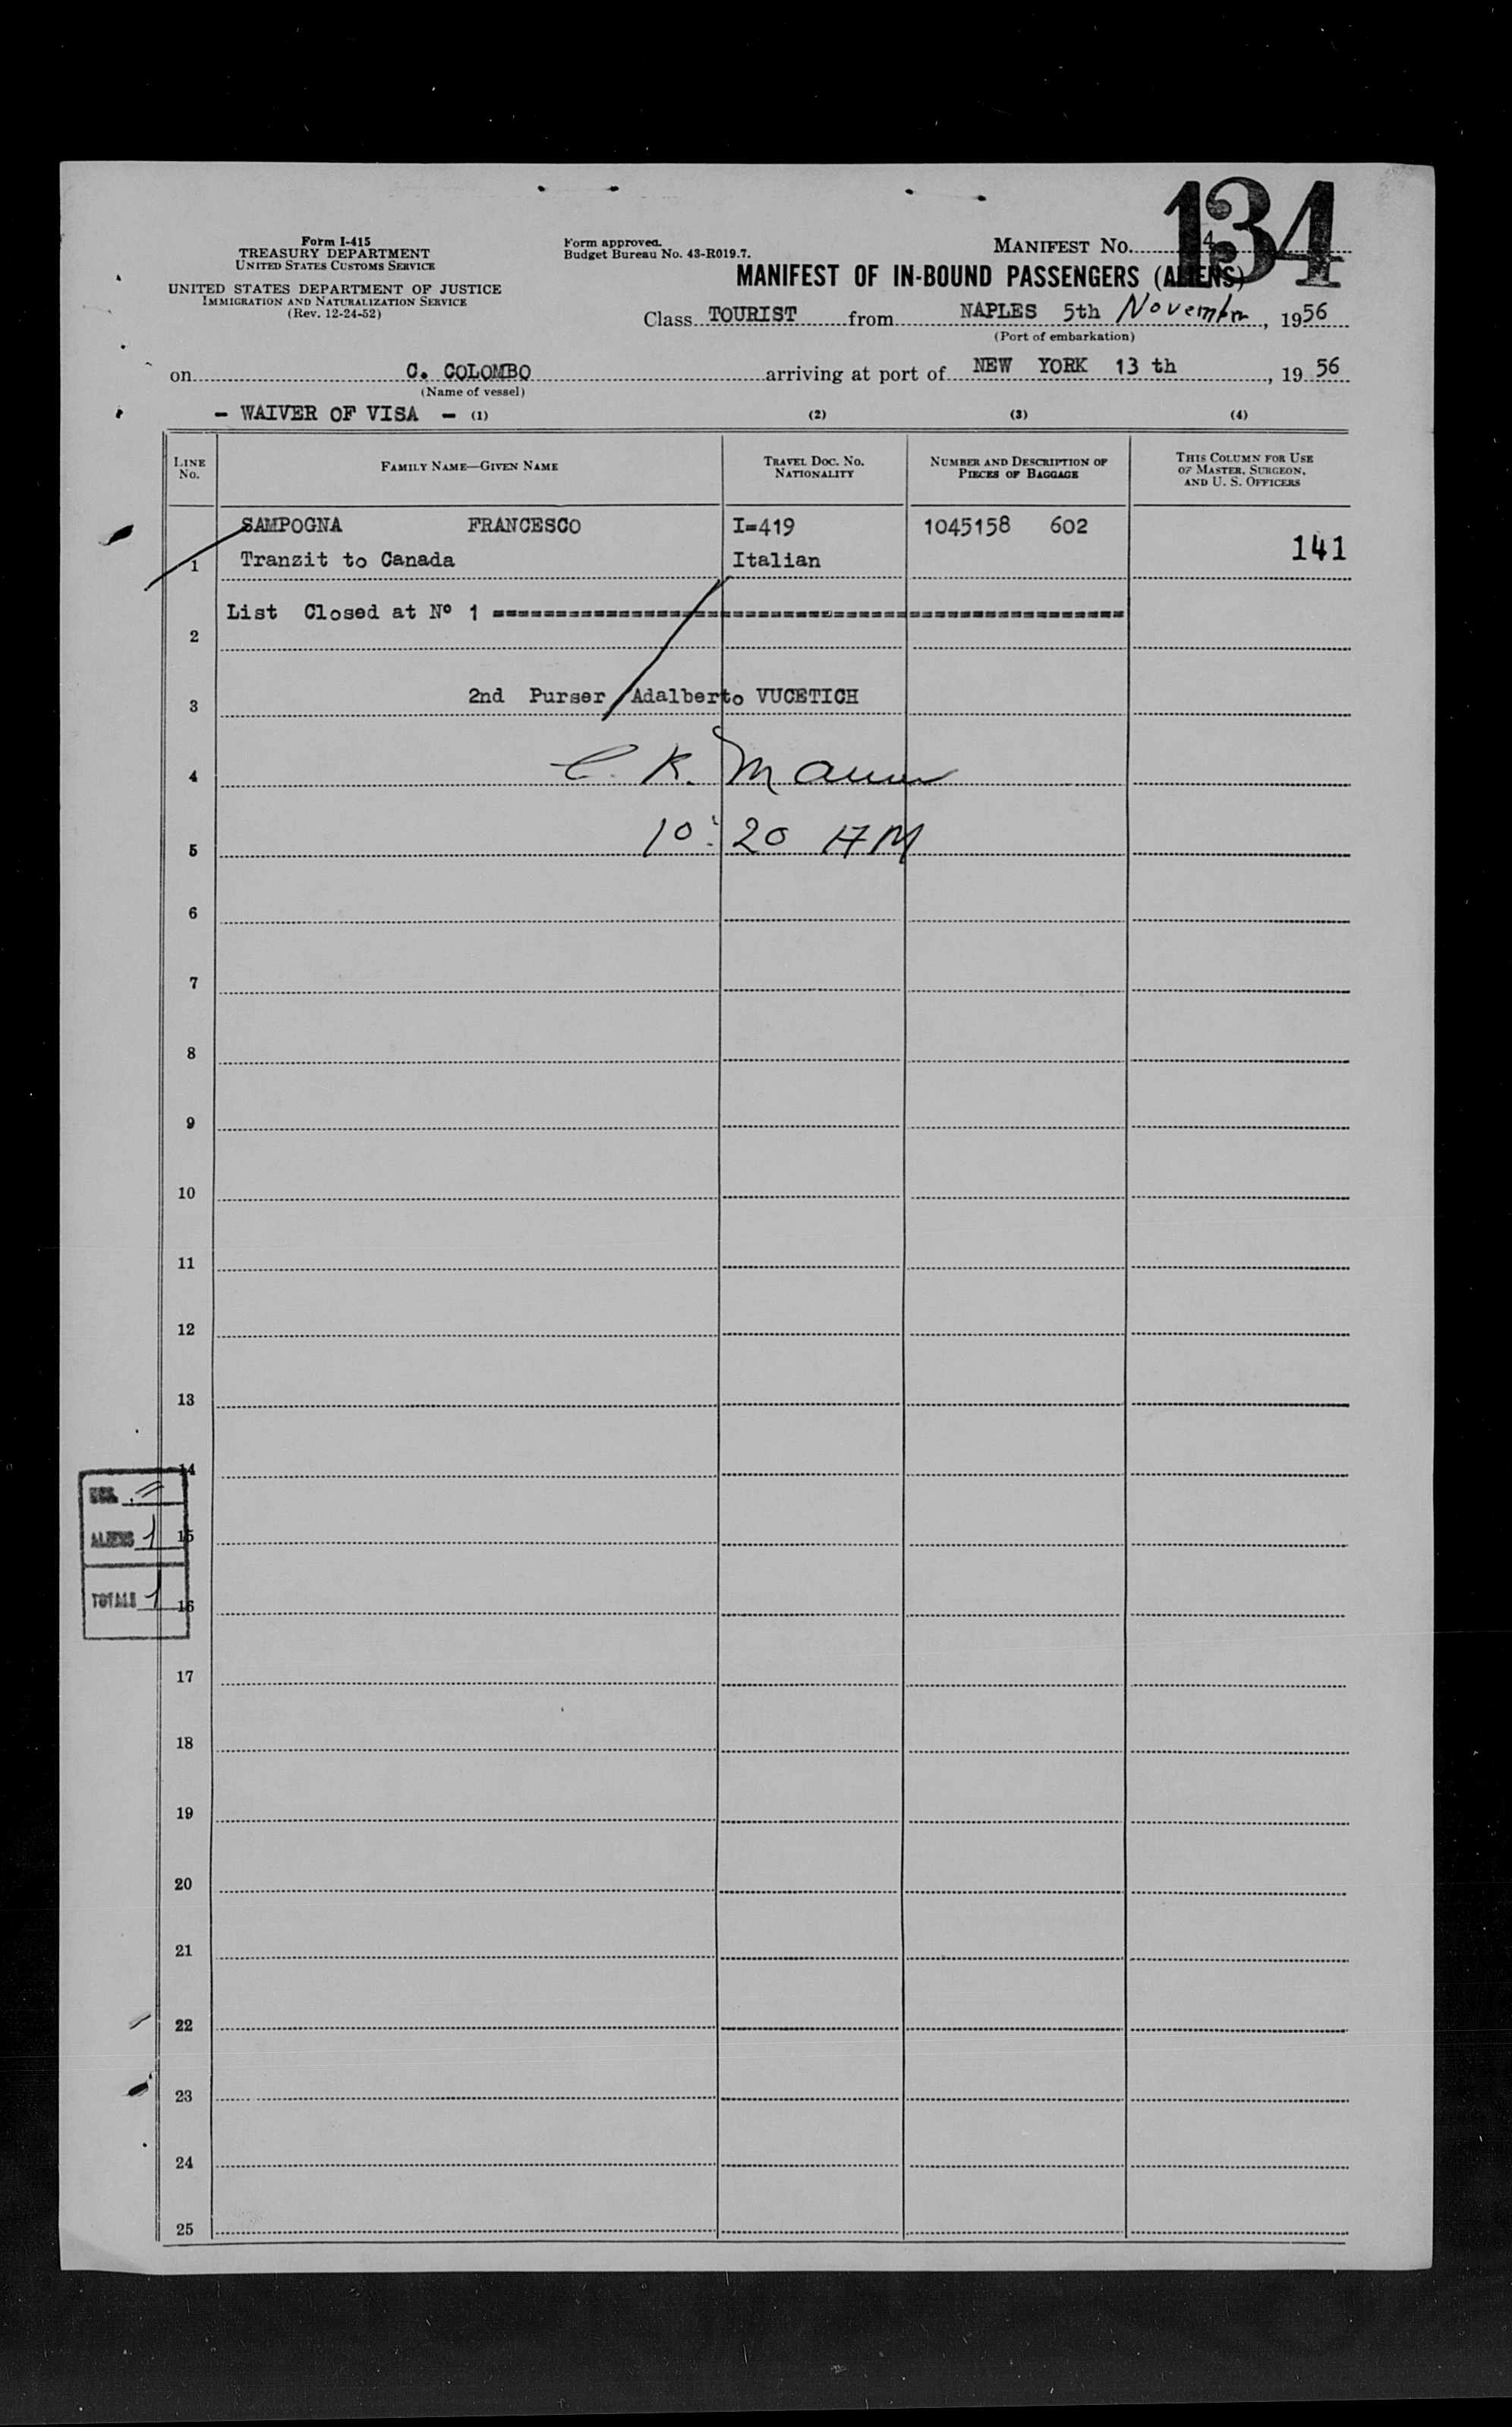 134
Form I-415
TREASURY DEPARTMENT
UNITED STATES CUSTOMS SERVICE
UNITED STATES DEPARTMENT OF JUSTICE
IMMIGRATION AND NATURALIZATION SERVICE
(Rev. 12-24-52)
Form approved.
Budget Bureau No. 43-R019.7.
MANIFEST NO. 4
MANIFEST OF IN-BOUND PASSENGERS (ALIENS)
Class TOURIST from NAPLES 5th November, 1956
(Port of embarkation)
on C. COLOMBO arriving at port of NEW YORK 13 th, 1956
(Name of vessel)
- WAIVER OF VISA - (1) (2) (3) (4)
LINE No. FAMILY NAME—GIVEN NAME TRAVEL DOC. NO. NATIONALITY NUMBER AND DESCRIPTION OF PIECES OF BAGGAGE THIS COLUMN FOR USE OF MASTER, SURGEON, AND U. S. OFFICERS
SAMPOGNA FRANCESCO I=419 1045158 602
1 Tranzit to Canada Italian 141
List Closed at Nº 1 ================================
2
3 2nd Purser Adalberto VUCETICH
4 C. K.
5 10:20 AM
6
7
8
9
10
11
12
13
14
15
16
ALIENS 1
TOTALS 1
17
18
19
20
21
22
23
24
25